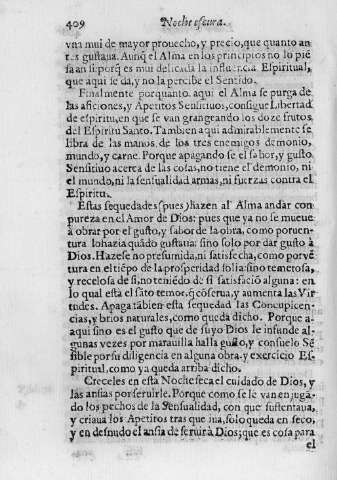 409 Noche escura.
vna mui de mayor prouecho, y precio, que quanto an
res gustaua. Aunq̃ el Alma en los principios no lo piẽ
sa an si: porq̃ es mui delicada la influencia Espiritual,
que aqui se da, y no la percibe el Sentido.
Finalmente porquanto aqui el Alma se purga de
las aficiones, y Apetitos Sensitiuos, consigue Libertad
de espiritu, en que se van grangeando los doze frutos
del Espiritu Santo. Tambien aqui admirablemente se
libra de las manos de los tres enemigos demonio,
mundo, y carne. Porque apagando se el sabor, y gusto
Sensitiuo acerca de las cosas, no tiene el demonio, ni
el mundo, ni la sensualidad armas, ni fuerzas contra el
Espiritu.
Estas sequedades (pues) hazen al Alma andar con
pureza en el Amor de Dios: pues que ya no se mueue
à obrar por el gusto, y sabor de la obra, como poruen-
tura lo hazia quãdo gustaua: sino solo por dar gusto à
Dios. Hazese no presumida, ni satisfecha, como porvẽ
tura en el tiẽpo de la prosperidad solia: sino temerosa,
y recelosa de si, no teniẽdo de si satisfaciõ alguna: en
lo qual està el sãto temor, q̃ cõserua, y aumenta las Vir
tudes. Apaga tãbien esta sequedad las Concupicen-
cias, y brios naturales, como queda dicho. Porque a-
aqui sino es el gusto que de suyo Dios le infunde al-
gunas vezes por marauilla halla gusto, y consuelo Sẽ
sible por su diligencia en alguna obra, y exercicio Es-
piritual, como ya queda arriba dicho.
Creceles en esta Noche seca el cuidado de Dios, y
las ansias por seruirle. Porque como se le van enjuga-
do los pechos de la Sensualidad, con que sustentaua,
y criaua los Apetitos tras que iua, solo queda en seco,
y en desnudo el ansia de seruir à Dios; que es cosa para
el